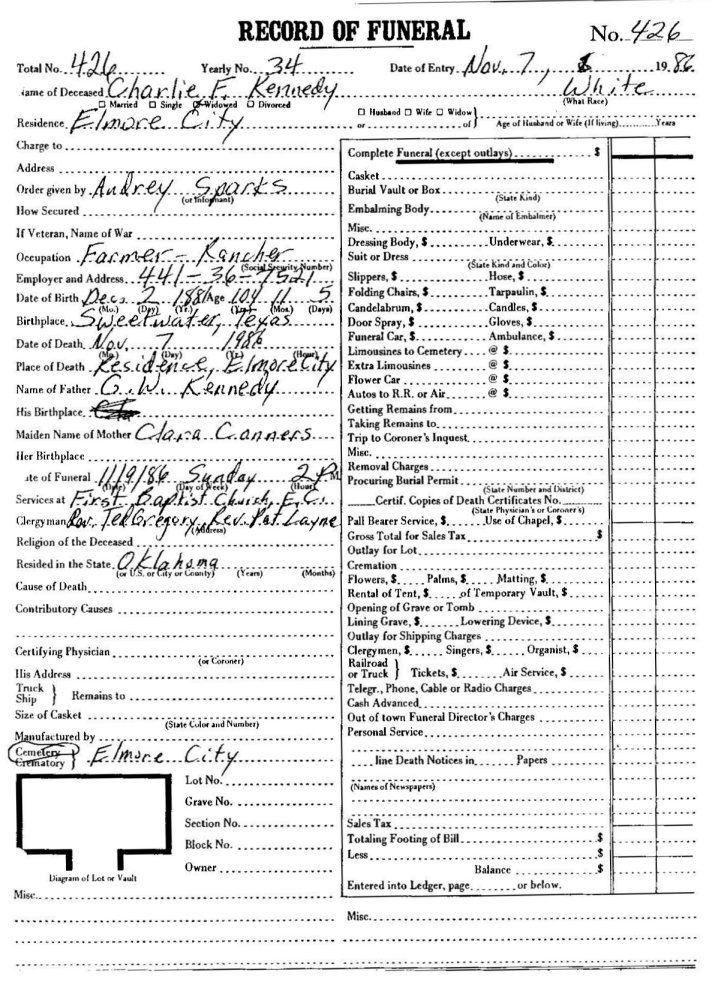 RECORD OF FUNERAL
No. 426
Total No. 426 Yearly No. 34 Date of Entry Nov. 7, 1986
ame of Deceased Charlie F. Kennedy White
☐ Married ☐ Single ☒ Widowed ☐ Divorced (What Race)
Residence Elmore City ☐ Husband ☐ Wife ☐ Widow } or of Age of Husband or Wife (If living) Years
Charge to
Address
Order given by Audrey Sparks
(or Informant)
How Secured
If Veteran, Name of War
Occupation Farmer - Rancher
(Social Security Number)
Employer and Address 441-36-7521
Date of Birth Dec. 2 1881 Age 104 11 5
(Mo.) (Day) (Yr.) (Yrs.) (Mos.) (Days)
Birthplace Sweetwater, Texas
Date of Death Nov. 7 1986
(Mo.) (Day) (Yr.) (Hour)
Place of Death Residence, Elmore City
Name of Father G. W. Kennedy
His Birthplace
Maiden Name of Mother Clara Canners
Her Birthplace
te of Funeral 11/9/86 Sunday 2 PM
(Date) (Day of Week) (Hour)
Services at First Baptist Church, E.C.
Clergyman Rev. Ted Gregory, Rev. Pat Layne
(Address)
Religion of the Deceased
Resided in the State Oklahoma
(or U.S. or City or County) (Years) (Months)
Cause of Death
Contributory Causes
Certifying Physician
(or Coroner)
His Address
Truck
Ship } Remains to
Size of Casket
(State Color and Number)
Manufactured by
Cemetery
Crematory } Elmore City
Lot No.
Grave No.
Section No.
Block No.
Owner
Diagram of Lot or Vault
Misc.
Complete Funeral (except outlays) $
Casket
Burial Vault or Box
(State Kind)
Embalming Body
(Name of Embalmer)
Misc.
Dressing Body, $ Underwear, $
Suit or Dress
(State Kind and Color)
Slippers, $ Hose, $
Folding Chairs, $ Tarpaulin, $
Candelabrum, $ Candles, $
Door Spray, $ Gloves, $
Funeral Car, $ Ambulance, $
Limousines to Cemetery @ $
Extra Limousines @ $
Flower Car @ $
Autos to R.R. or Air @ $
Getting Remains from
Taking Remains to
Trip to Coroner's Inquest
Misc.
Removal Charges
Procuring Burial Permit
(State Number and District)
Certif. Copies of Death Certificates No.
(State Physician's or Coroner's)
Pall Bearer Service, $ Use of Chapel, $
Gross Total for Sales Tax $
Outlay for Lot
Cremation
Flowers, $ Palms, $ Matting, $
Rental of Tent, $ of Temporary Vault, $
Opening of Grave or Tomb
Lining Grave, $ Lowering Device, $
Outlay for Shipping Charges
Clergymen, $ Singers, $ Organist, $
Railroad
or Truck } Tickets, $ Air Service, $
Telegr., Phone, Cable or Radio Charges
Cash Advanced
Out of town Funeral Director's Charges
Personal Service
line Death Notices in Papers
(Names of Newspapers)
Sales Tax
Totaling Footing of Bill $
Less $
Balance $
Entered into Ledger, page or below.
Misc.